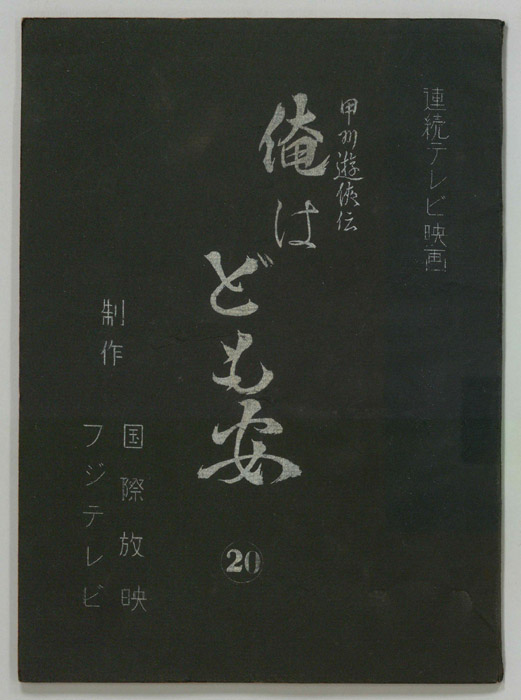 連続テレビ映画
甲州遊侠伝
俺はども安
20
制作
国際放映
フジテレビ